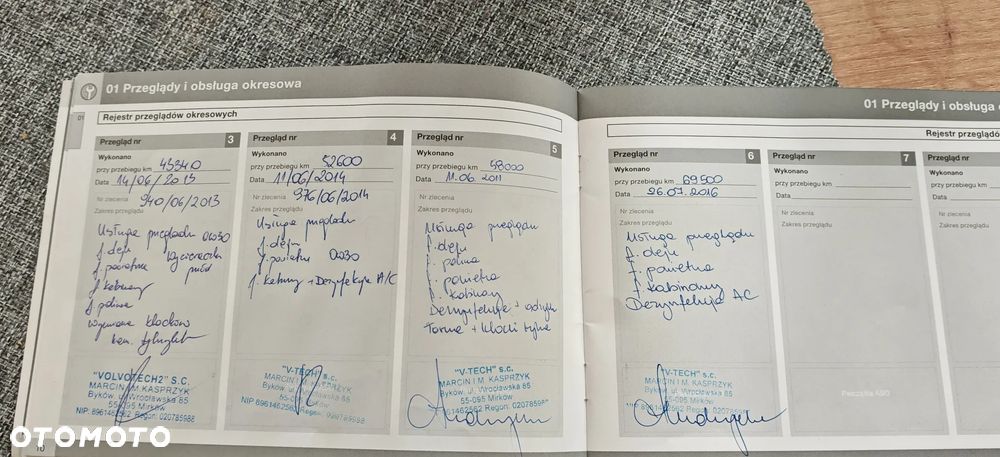 01 Przeglądy i obsługa okresowa
01
Rejestr przeglądów okresowych
Przegląd nr 3
Wykonano
przy przebiegu km 43340
Data 14/06/2013
Nr zlecenia 940/06/2013
Zakres przeglądu
Usługa przeglądu 0W30
f. oleju
f. powietrza
f. kabinowy
f. paliwa
wymiana klocków
"VOLVOTECH2" S.C.
MARCIN I M. KASPRZYK
Byków, ul. Wrocławska 85
55-095 Mirków
NIP 8961462562 Regon: 020785988
Przegląd nr 4
Wykonano
przy przebiegu km 52600
Data 11/06/2014
Nr zlecenia 976/06/2014
Zakres przeglądu
Usługa przeglądu
f. oleju
f. powietrza 0W30
f. kabiny + Dezynfekcja A/C
"V-TECH" s.c.
MARCIN I M. KASPRZYK
Byków, ul. Wrocławska 85
55-095 Mirków
NIP 8961462562 Regon: 020785988
Przegląd nr 5
Wykonano
przy przebiegu km 58000
Data 11.06.2011
Nr zlecenia
Zakres przeglądu
Usługa przeglądu
f. oleju
f. paliwa
f. powietrza
f. kabinowy
Dezynfekcja +
Tarcze + klocki tylne
"V-TECH" s.c.
MARCIN I M. KASPRZYK
Byków, ul. Wrocławska 85
55-095 Mirków
8961462562 Regon: 020785988
01 Przeglądy i obsługa
Rejestr przeglądó
Przegląd nr 6
Wykonano
przy przebiegu km 69500
Data 26.07.2016
Nr zlecenia
Zakres przeglądu
Usługa przeglądu
f. oleju
f. powietrza
f. kabinowy
Dezynfekcja AC
"V-TECH" s.c.
MARCIN I M. KASPRZYK
Byków, ul. Wrocławska 85
55-095 Mirków
8961462562 Regon: 020785988
Przegląd nr 7
Wykonano
przy przebiegu km
Data
Nr zlecenia
Zakres przeglądu
Pieczątka ASO
Przegląd nr
Wykonano
przy przebiegu km
Data
Nr zlecenia
Zakres przeglądu
10
OTOMOTO